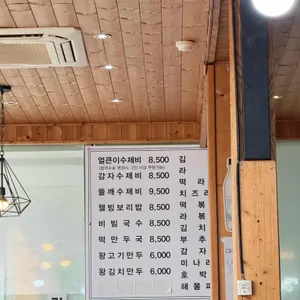 얼큰이수제비 8,500
감자수제비 8,500
들깨수제비 9,500
웰빙보리밥 8,500
비빔국수 8,500
떡만두국 8,500
왕고기만두 6,000
왕김치만두 6,000
김
라
떡 라
치즈라
떡 볶
라 볶
김 치
부 추
감 자
미나리
호 박
해물파